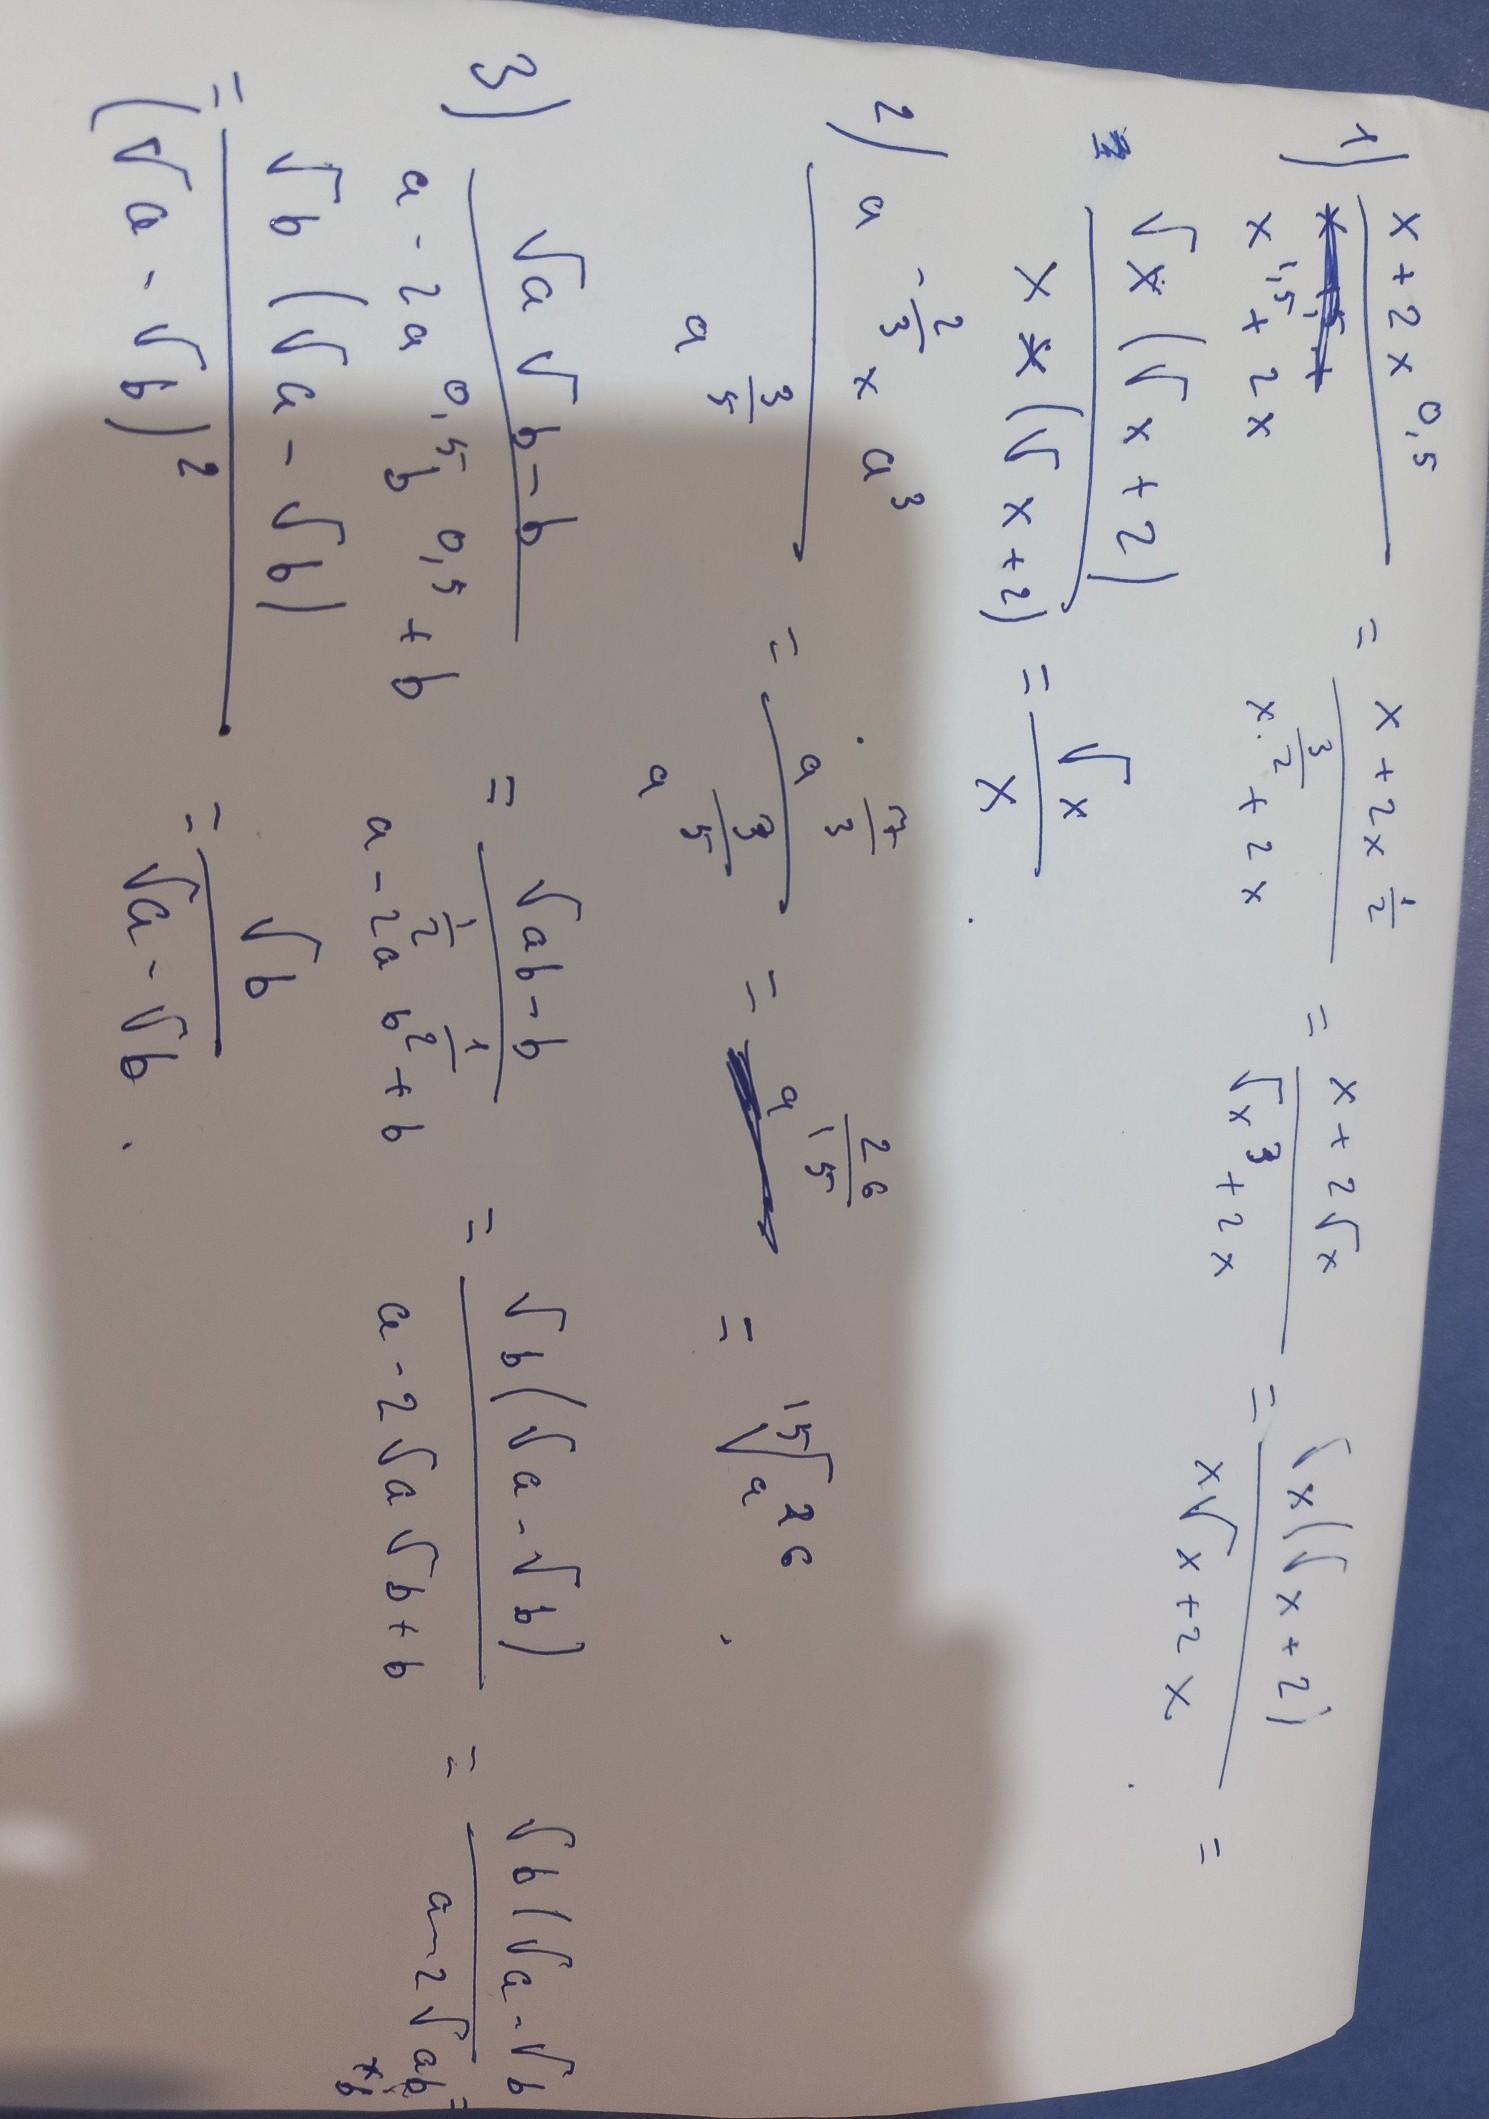 1) \frac{x+2x^{0,5}}{x^{1,5}+2x} = \frac{x+2x^{\frac{1}{2}}}{x^{\frac{3}{2}}+2x} = \frac{x+2\sqrt{x}}{\sqrt{x^3}+2x} = \frac{\sqrt{x}(\sqrt{x}+2)}{x\sqrt{x}+2x} =
\frac{\sqrt{x}(\sqrt{x}+2)}{x(\sqrt{x}+2)} = \frac{\sqrt{x}}{x}.
2) \frac{a^{-\frac{2}{3}} \times a^3}{a^{\frac{3}{5}}} = \frac{a^{\frac{7}{3}}}{a^{\frac{3}{5}}} = a^{\frac{26}{15}} = \sqrt[15]{a^{26}}.
3) \frac{\sqrt{a}\sqrt{b}-b}{a-2a^{0,5}b^{0,5}+b} = \frac{\sqrt{ab}-b}{a-2a^{\frac{1}{2}}b^{\frac{1}{2}}+b} = \frac{\sqrt{b}(\sqrt{a}-\sqrt{b})}{a-2\sqrt{a}\sqrt{b}+b} = \frac{\sqrt{b}(\sqrt{a}-\sqrt{b}}{a-2\sqrt{ab}+b} =
= \frac{\sqrt{b}(\sqrt{a}-\sqrt{b})}{(\sqrt{a}-\sqrt{b})^2} = \frac{\sqrt{b}}{\sqrt{a}-\sqrt{b}}.